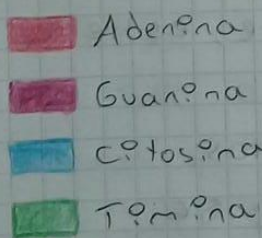 Adenina
Guanina
Citosina
Timina